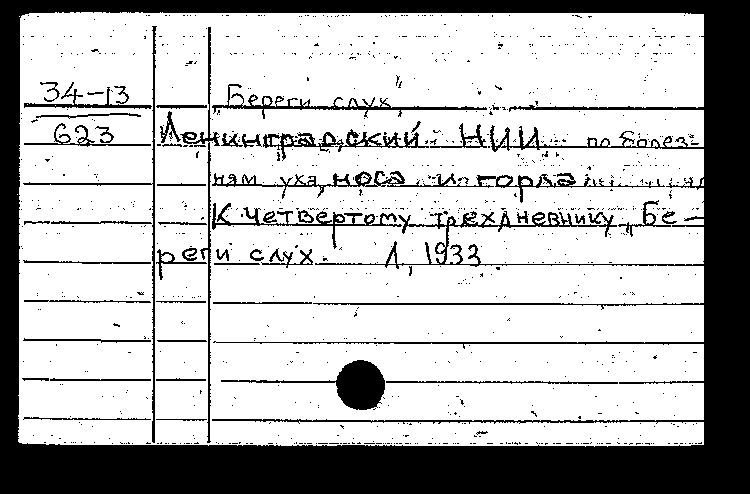 34-13
623
„Береги слух"
Ленинградский НИИ по болез-
ням уха, носа и горла
К четвертому трехдневнику „Бе-
реги слух. Л, 1933